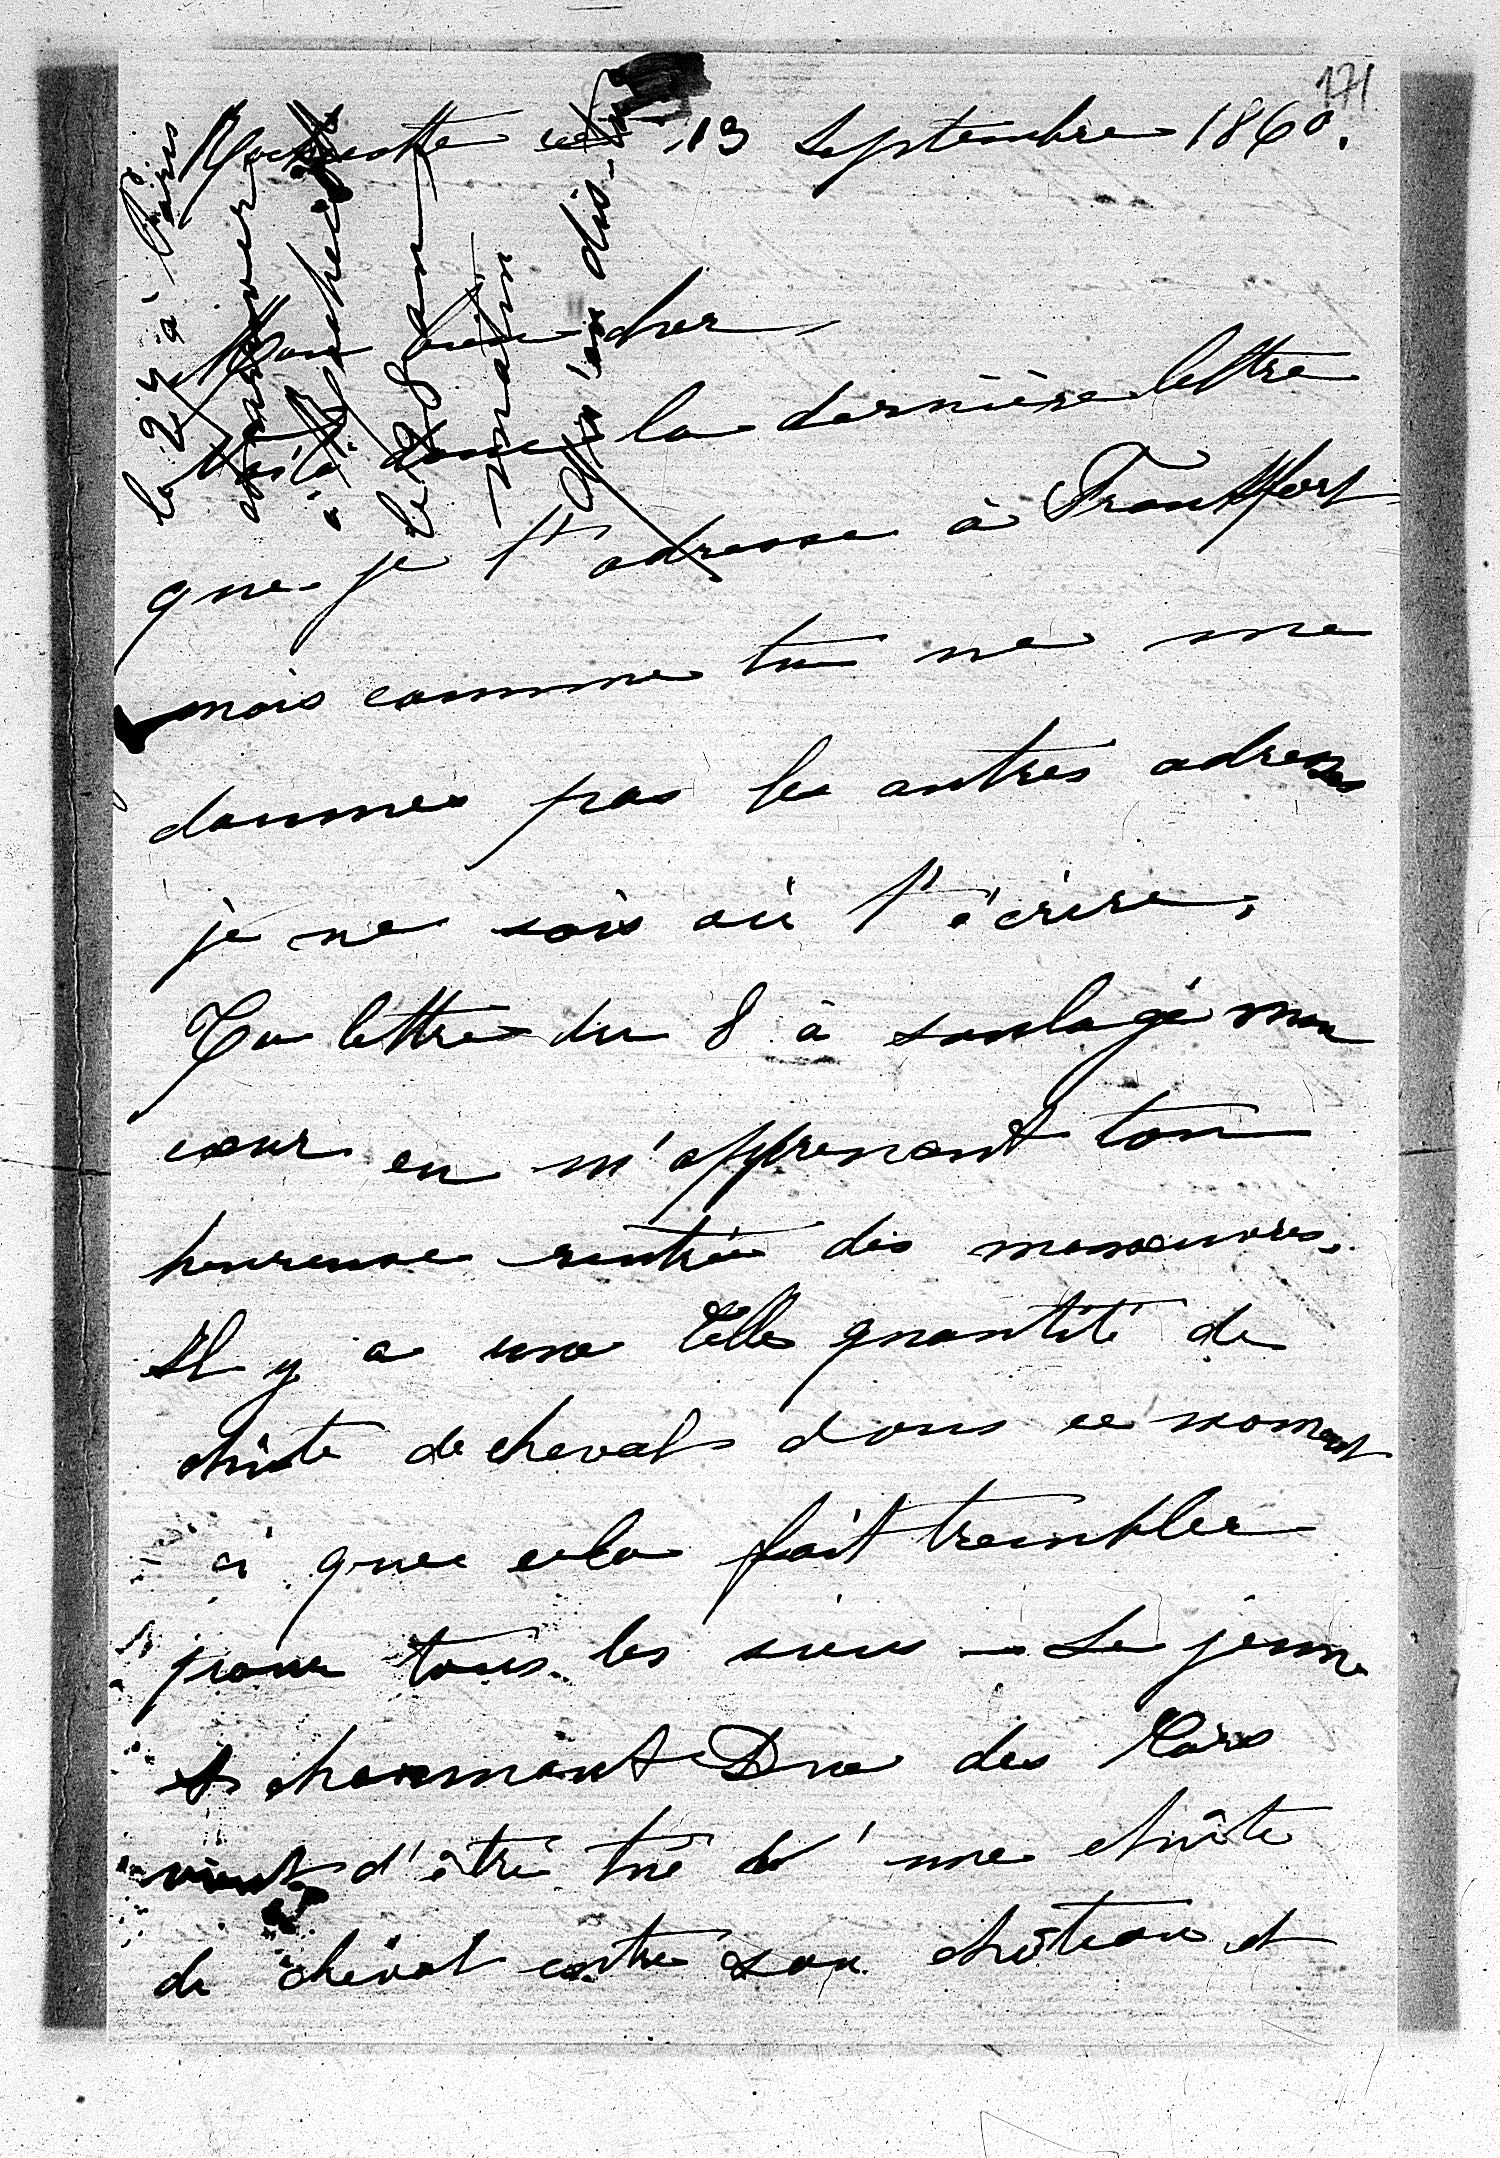 171
Rochecotte 13 Septembre 1860.
Mon bien cher,
Voilà donc la dernière lettre
que je t'adresse à Frankfort
mais comme tu ne me
donnes pas les autres adresses
je ne sais où t'écrire,
Ta lettre du 8 à soulagé mon
cœur en m'apprenant ton
heureuse rentrée des manœuvres.
Il y a une telle quantité de
chûte de cheval dans ce moment
ci que cela fait trembler
pour tous les siens – Le jeune
et charmant Duc des Cars
vient d'être tué d'une chûte
de cheval entre son château et
le 27 à Paris
à
le 28 au
matin
dis-